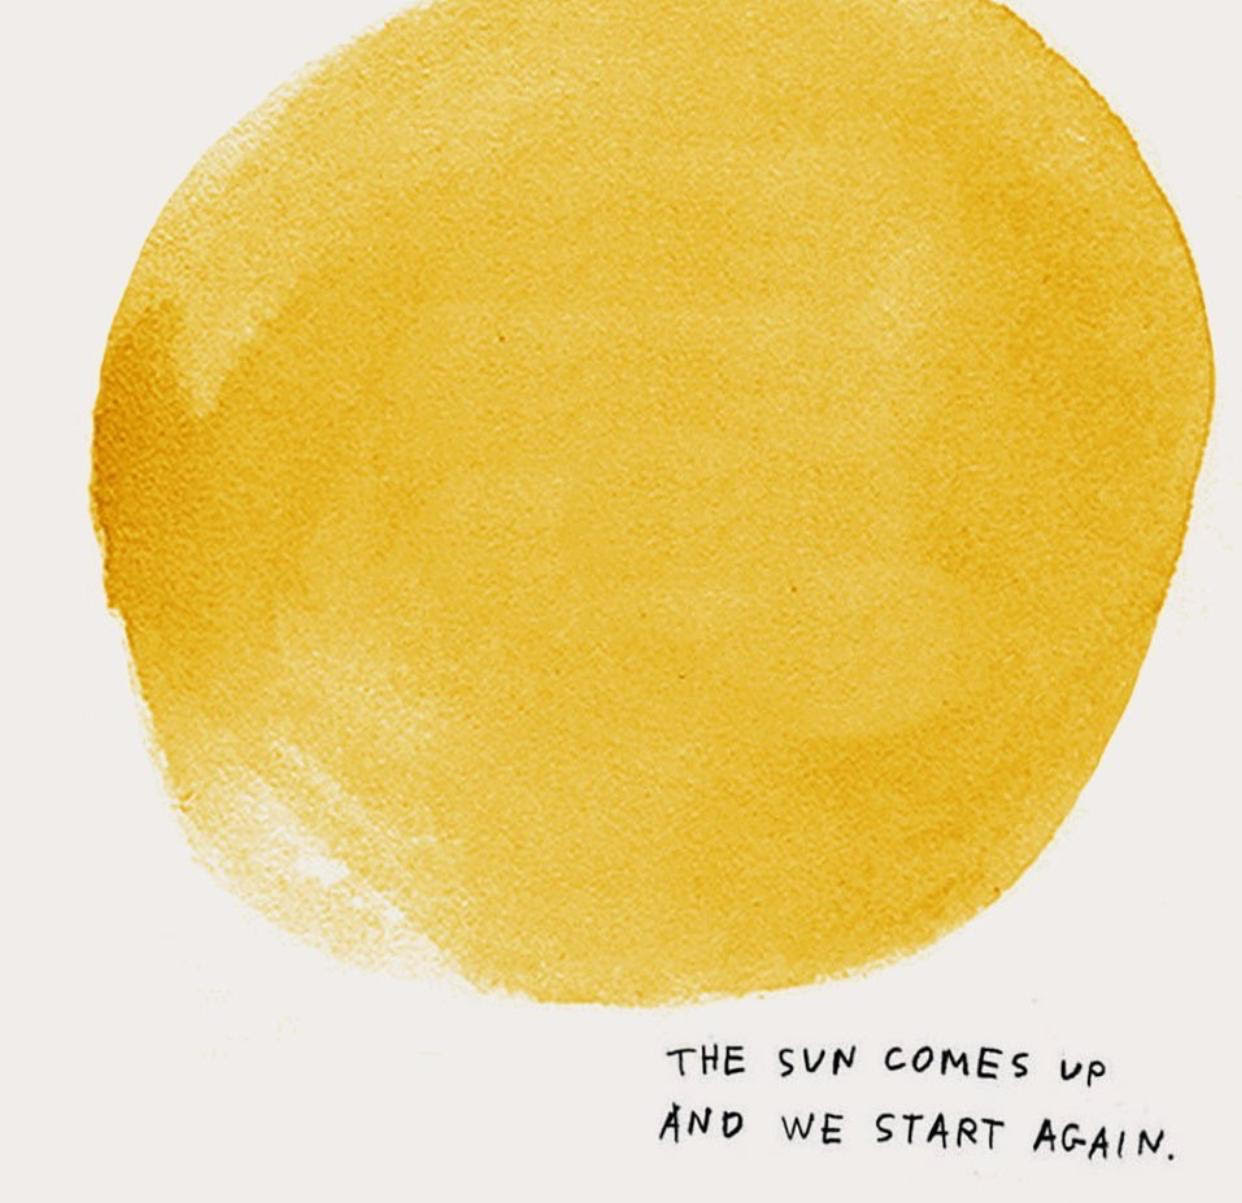 THE SUN COMES UP
AND WE START AGAIN.